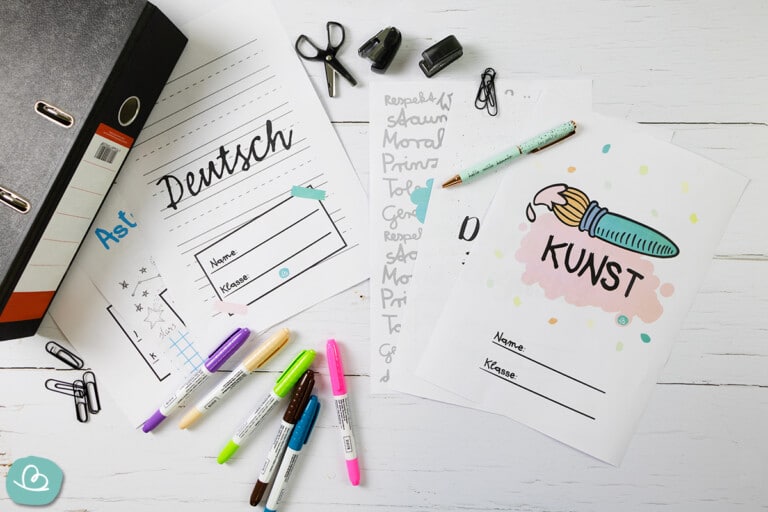 Deutsch
Name:
Klasse:
Ast
Respekt
Staun
Moral
Prinz
Tole
Respe
Mo
Pri
D
KUNST
Name:
Klasse: